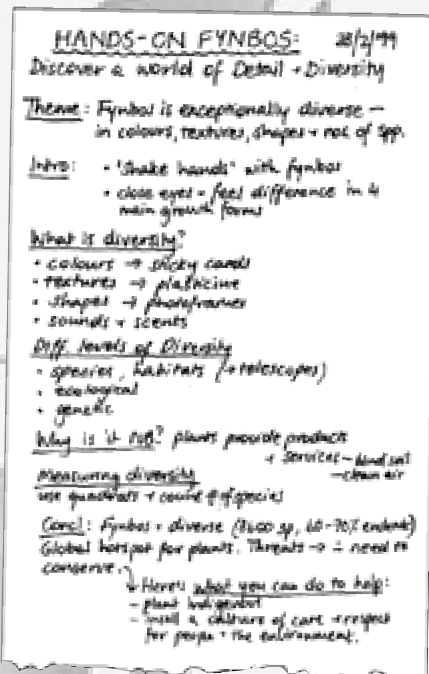 HANDS-ON FYNBOS: 28/2/99
Discover a world of Detail + Diversity
Theme: Fynbos is exceptionally diverse –
in colours, textures, shapes + nos. of spp.
Intro: • 'Shake hands' with fynbos
• close eyes – feel difference in 4
main growth forms
What is diversity?
• colours → sticky cards
• textures → plasticine
• shapes → photoframes
• sounds + scents
Diff. levels of Diversity
• species, habitats (→ telescopes)
• ecological
• genetic
Why is it plants provide products
+ services – bind soil
– clean air
Measuring diversity
use quadrats + count # of species
Concl: Fynbos = diverse (8600 sp, 60-70% endemic)
Global hotspot for plants. Threats → ∴ need to
conserve.
Here's what you can do to help:
– plant indigenous
– instil a culture of care + respect
for people + the environment.